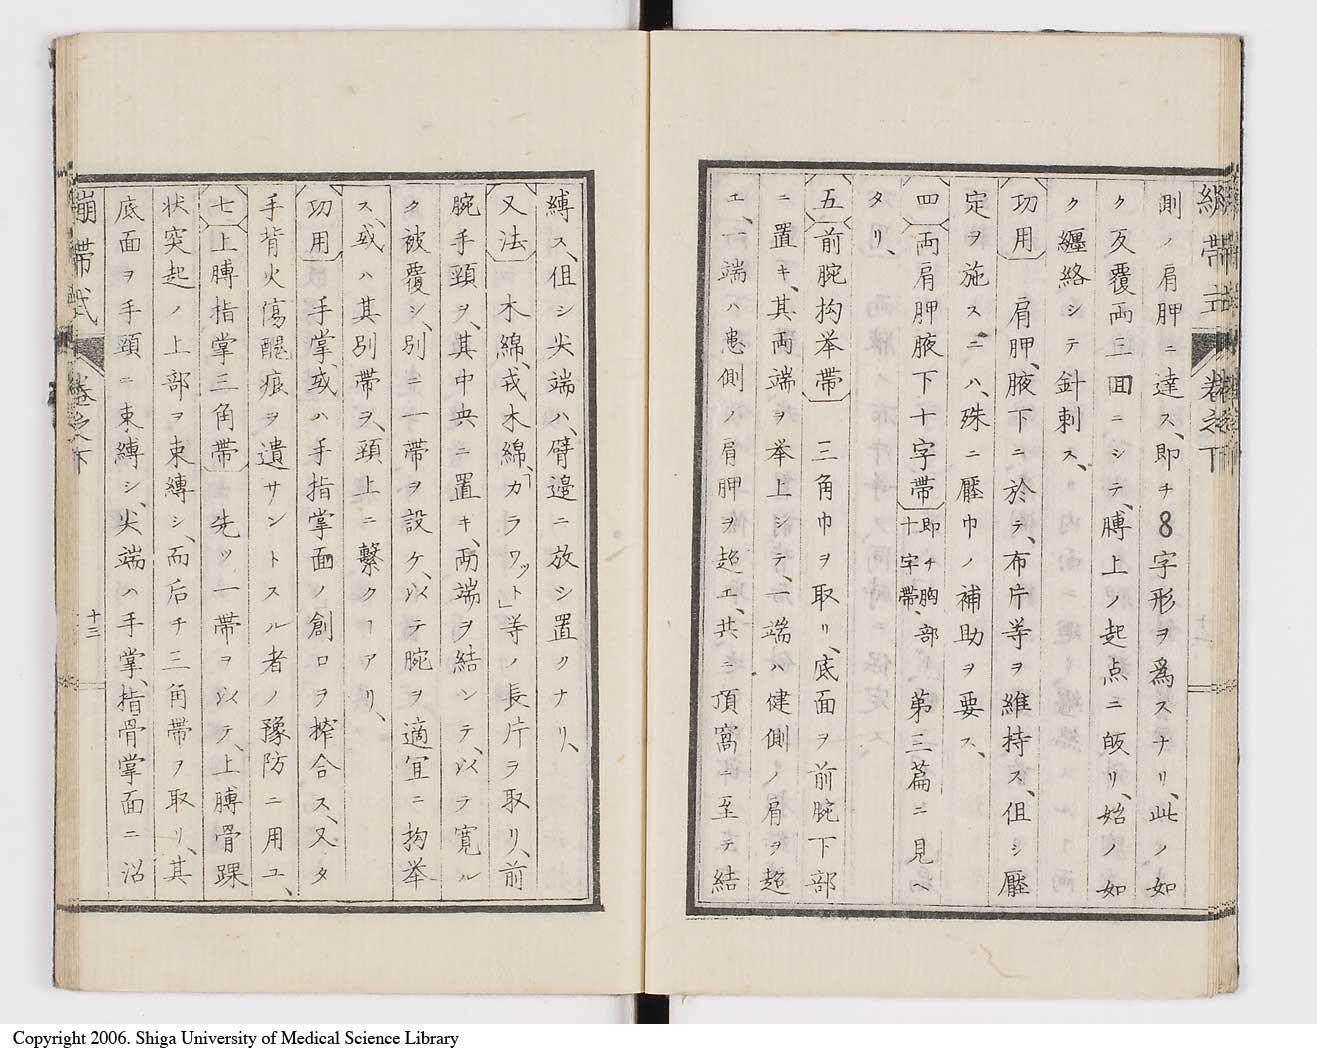 側ノ肩胛ニ達ス、即チ8字形ヲ爲スナリ、此ノ如
ク反覆両三回ニシテ、膊上ノ起点ニ皈リ、始ノ如
ク纏絡シテ針刺ス、
功用 肩胛、腋下ニ於テ、布片等ヲ維持ス、但シ壓
定ヲ施スニハ、殊ニ壓巾ノ補助ヲ要ス、
四 両肩胛腋下十字帯 即チ胸部十字帯、 苐三篇ニ見ヘ
タリ、
五 前腕抅挙帯 三角巾ヲ取リ、底面ヲ前腕下部
ニ置キ、其両端ヲ挙上シテ、一端ハ健側ノ肩ヲ超
エ、一端ハ患側ノ肩胛ヲ超エ、共ニ頂窩ニ至テ結
縛ス、但シ尖端ハ、臂邉ニ放シ置クナリ、
又法 木綿、或木綿、「カラワット」等ノ長片ヲ取リ、前
腕手頸ヲ、其中央ニ置キ、両端ヲ結ンテ、以テ寛ル
ク被覆シ、別ニ一帯ヲ設ケ、以テ腕ヲ適宜ニ抅挙
ス、或ハ其別帯ヲ、頸上ニ繋クヿアリ、
功用 手掌、或ハ手指掌面ノ創口ヲ搾合ス、又タ
手背火傷醜痕ヲ遺サントスル者ノ豫防ニ用ユ、
七 上膊指掌三角帯 先ツ一帯ヲ以テ、上膊骨踝
状突起ノ上部ヲ束縛シ、而后チ三角帯ヲ取リ、其
底面ヲ手頸ニ束縛シ、尖端ハ手掌、指骨掌面ニ沿
繃帯式 巻之下
十三
Copyright 2006. Shiga University of Medical Science Library